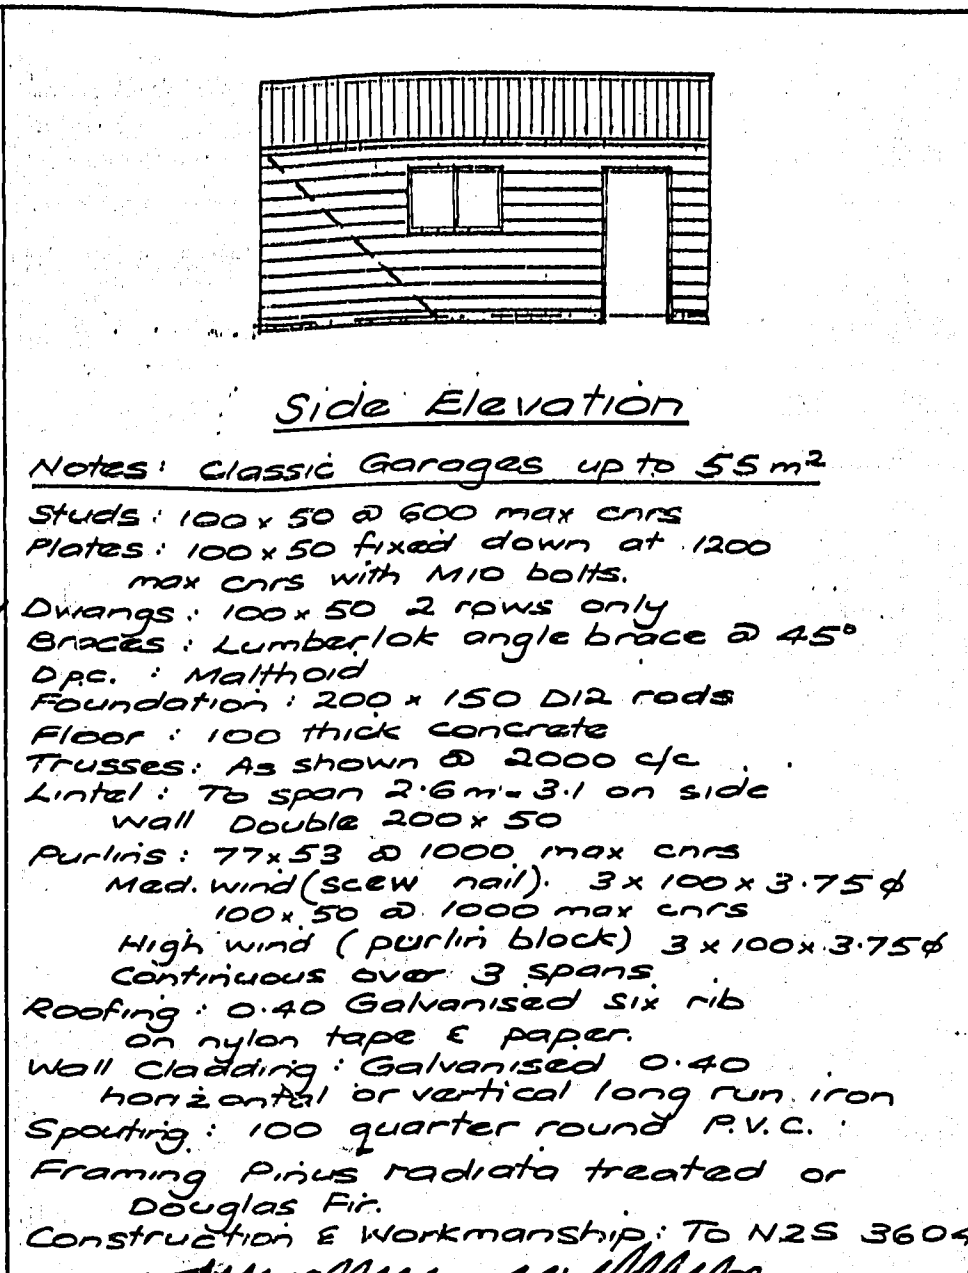 Side Elevation
Notes: Classic Garages up to 55 m²
Studs: 100 x 50 @ 600 max cnrs
Plates: 100 x 50 fixed down at 1200
max cnrs with M10 bolts.
Dwangs: 100 x 50 2 rows only
Braces: Lumberlok angle brace @ 45°
Dpc. : Malthoid
Foundation: 200 x 150 D12 rods
Floor : 100 thick concrete
Trusses: As shown @ 2000 c/c
Lintel: To span 2.6m - 3.1 on side
wall Double 200 x 50
Purlins: 77x53 @ 1000 max cnrs
Med. wind (scew nail). 3 x 100 x 3.75 ϕ
100 x 50 @ 1000 max cnrs
High wind (purlin block) 3 x 100 x 3.75 ϕ
Continuous over 3 spans
Roofing: 0.40 Galvanised six rib
on nylon tape & paper.
Wall Cladding: Galvanised 0.40
horizontal or vertical long run iron
Spouting: 100 quarter round P.V.C.
Framing Pinus radiata treated or
Douglas Fir.
Construction & Workmanship: To NZS 3604